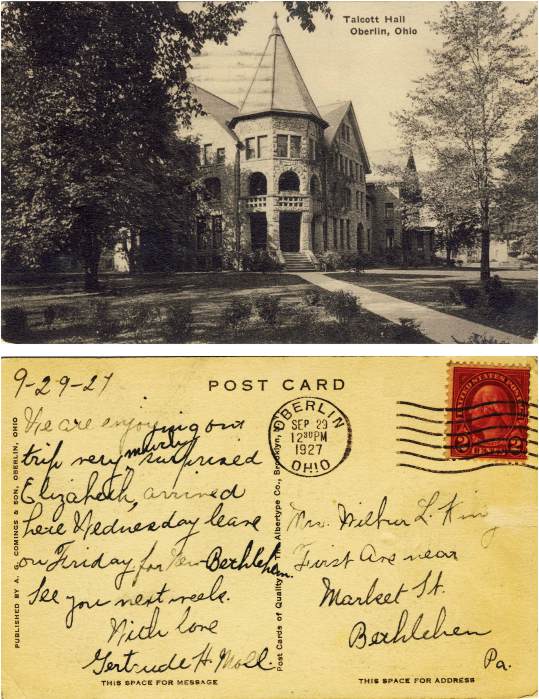 Talcott Hall
Oberlin, Ohio
9-29-27
POST CARD
We are enjoying our
trip very much, surprised
Elizabeth, arrived
here Wednesday leave
on Friday for Bethlehem.
See you next week.
With love
Gertrude H. Moll.
THIS SPACE FOR MESSAGE
PUBLISHED BY A. G. COMINGS & SON, OBERLIN, OHIO
Post Cards of Quality. The Albertype Co., Brooklyn,
OBERLIN
SEP 29
12 30PM
1927
OHIO
UNITED STATES POSTAGE
2 CENTS 2
Mrs. Wilbur L. King
First Ave near
Market St.
Bethlehen
Pa.
THIS SPACE FOR ADDRESS